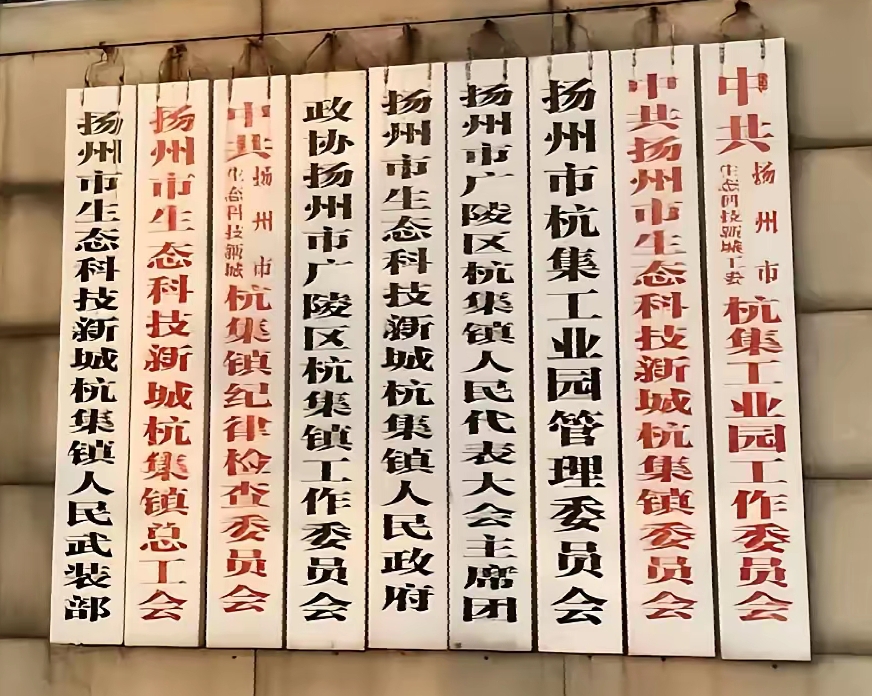 中共
扬州市
杭集工业园工作委员会
中共扬州市生态科技新城杭集镇委员会
扬州市杭集工业园管理委员会
扬州市广陵区杭集镇人民代表大会主席团
扬州市生态科技新城杭集镇人民政府
政协扬州市广陵区杭集镇工作委员会
中共
扬州市
生态科技新城
杭集镇纪律检查委员会
扬州市生态科技新城杭集镇总工会
扬州市生态科技新城杭集镇人民武装部